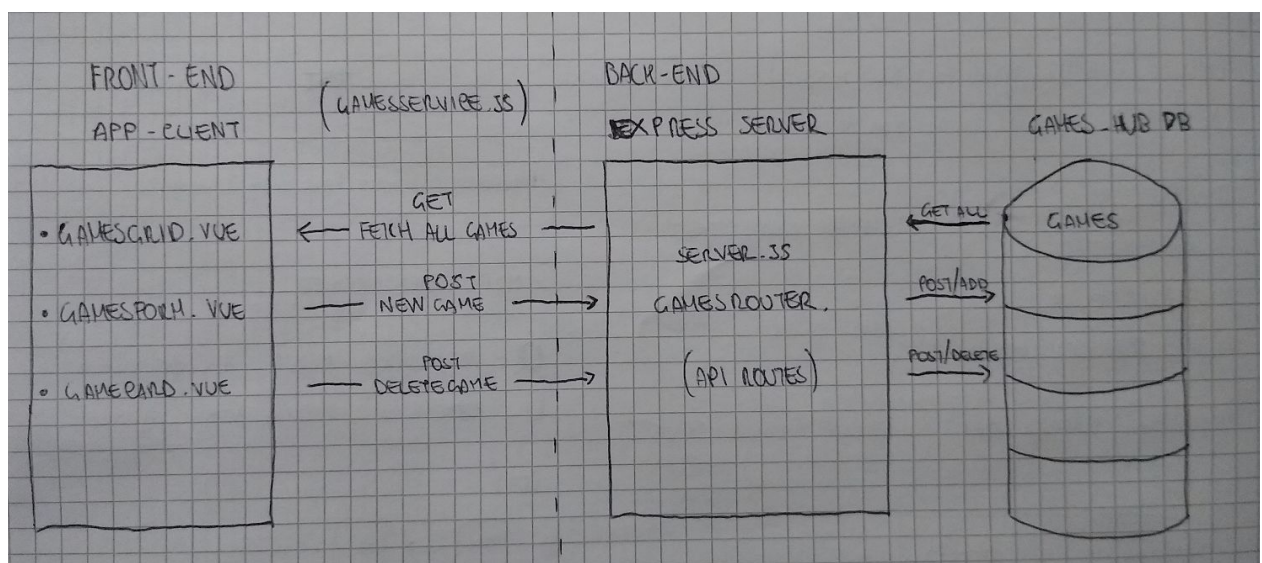 FRONT-END
APP-CLIENT
(GAMESSERVICE.JS)
BACK-END
EXPRESS SERVER
GAMES_HUB DB
• GAMESGRID.VUE
GET
FETCH ALL GAMES
• GAMESFORM.VUE
POST
NEW GAME
• GAMECARD.VUE
POST
DELETE GAME
SERVER.JS
GAMESROUTER.
(API ROUTES)
GET ALL
POST/ADD
POST/DELETE
GAMES